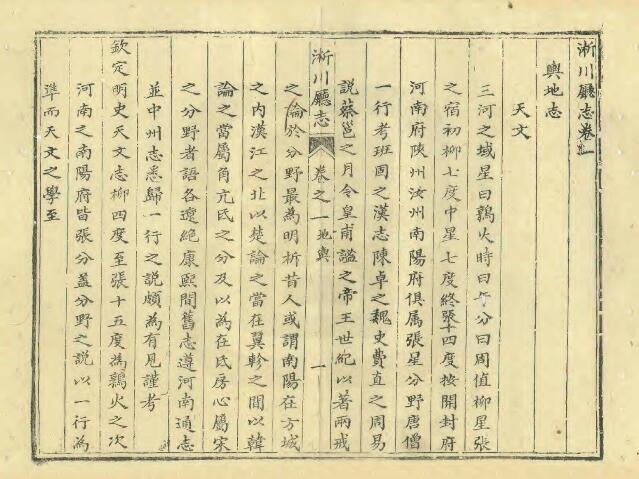 淅川廳志卷之一
輿地志
天文
三河之域星曰鶉火時曰午分曰周值柳星張
之宿初柳七度中星七度終張十四度按開封府
河南府陝州汝州南陽府俱属張星分野唐僧
一行考班固之漢志陳卓之魏史費直之周易
說蔡邕之月令皇甫謐之帝王世紀以著兩戒
淅川廳志 卷之一 輿地 一
之論於分野最為明析昔人或謂南陽在方城
之内漢江之北以楚論之當在翼軫之間以韓
論之當屬角亢氐之分及以為在氐房心屬宋
之分野者語各遼絶康熙間舊志遵河南通志
並中州志悉歸一行之說頗為有見謹考
欽定明史天文志柳四度至張十五度為鶉火之次
河南之南陽府皆張分蓋分野之說以一行為
準而天文之學至